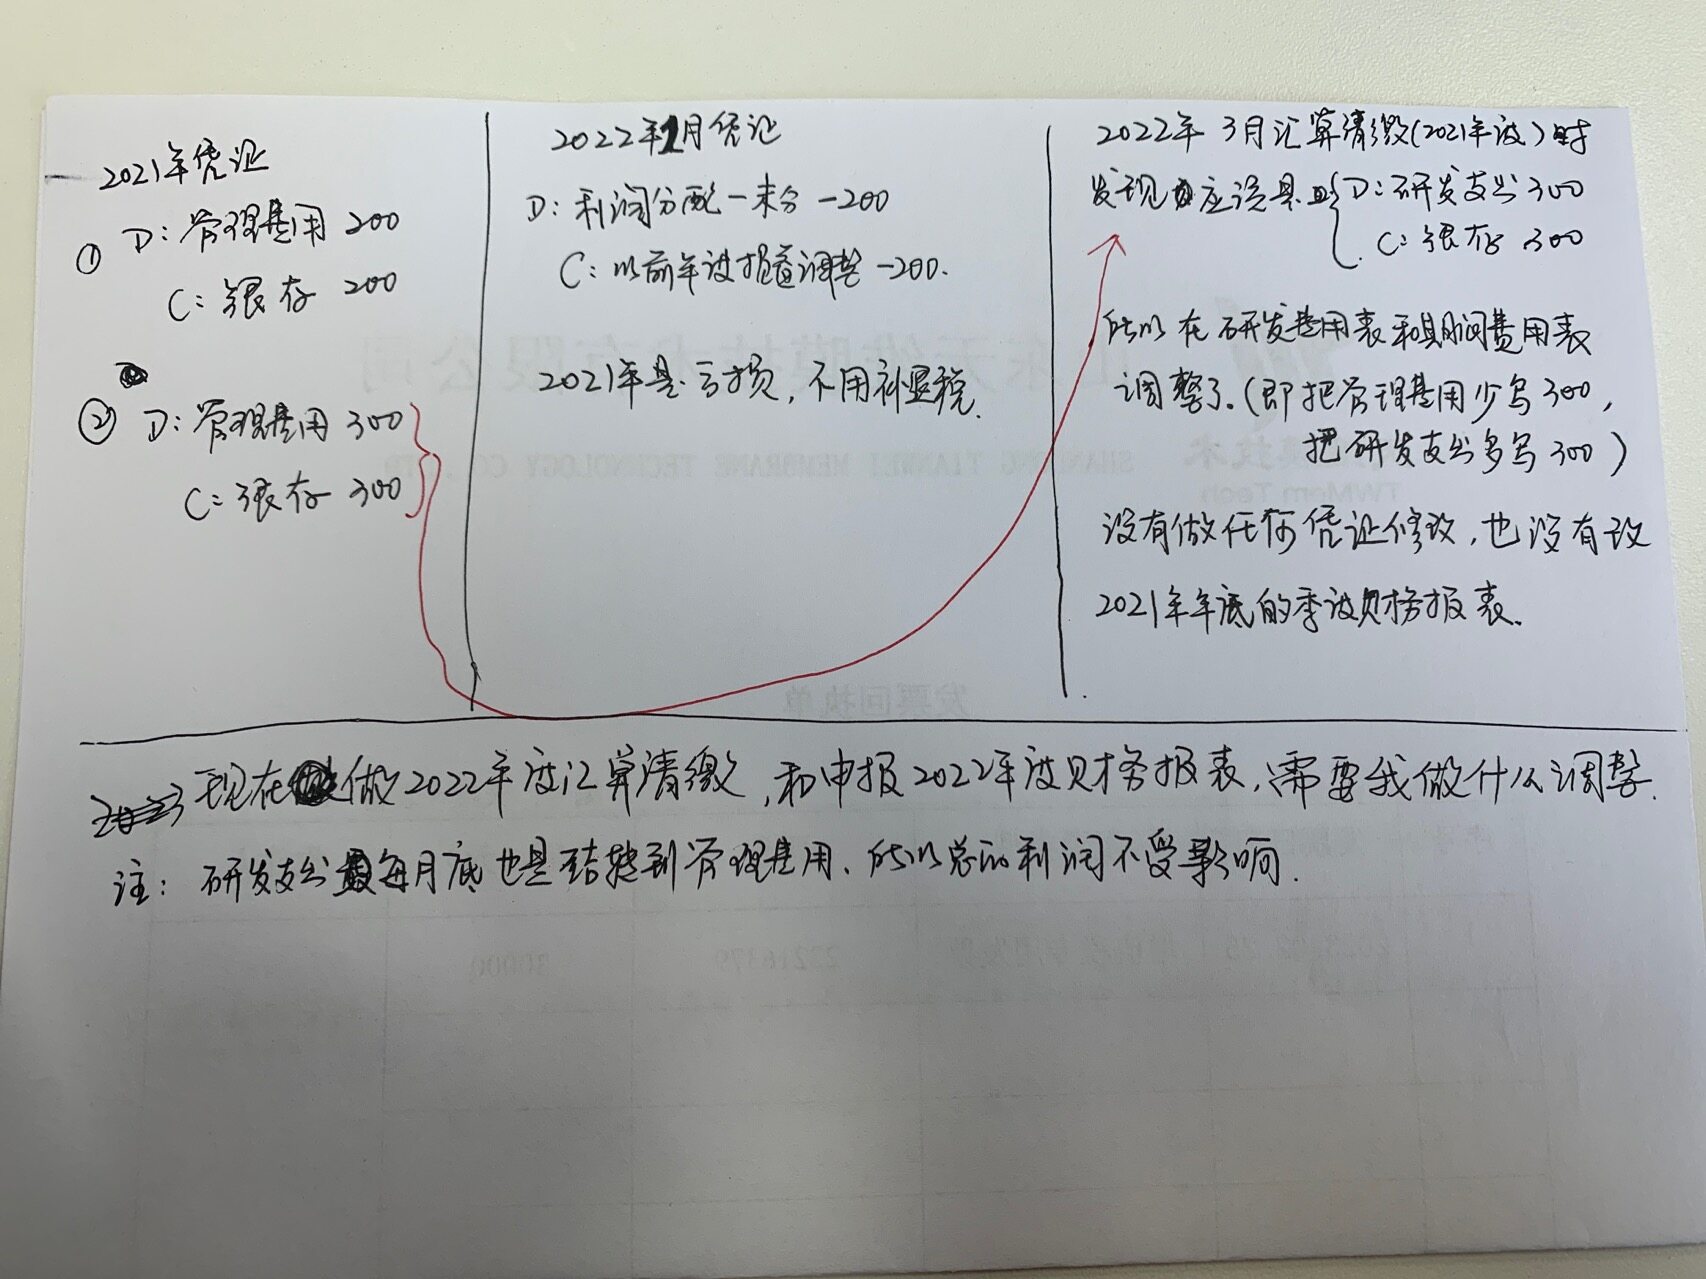 2021年凭证
① D: 管理费用 200
C: 银存 200
② D: 管理费用 300
C: 银存 300
2022年1月凭证
D: 利润分配-未分 -200
C: 以前年度损益调整 -200.
2021年是亏损, 不用补显税.
2022年 3月汇算清缴(2021年度)时
发现 应该是 D: 研发支出 300
C: 银存 300
所以在研发费用表和期间费用表
调整了.(即把管理费用少写300,
把研发支出多写300)
没有做任何凭证修改, 也没有改
2021年年底的季度财务报表.
现在 做2022年度汇算清缴, 和申报2022年度财务报表, 需要我做什么调整.
注: 研发支出 每月底也是结转到管理费用. 所以总的利润不受影响.
发票回执单